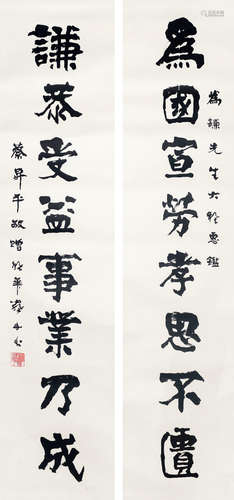 爲謙先生大雅惠鑑
爲國宣勞孝思不匱
謙恭受益事業乃成
蔡昇平敬贈